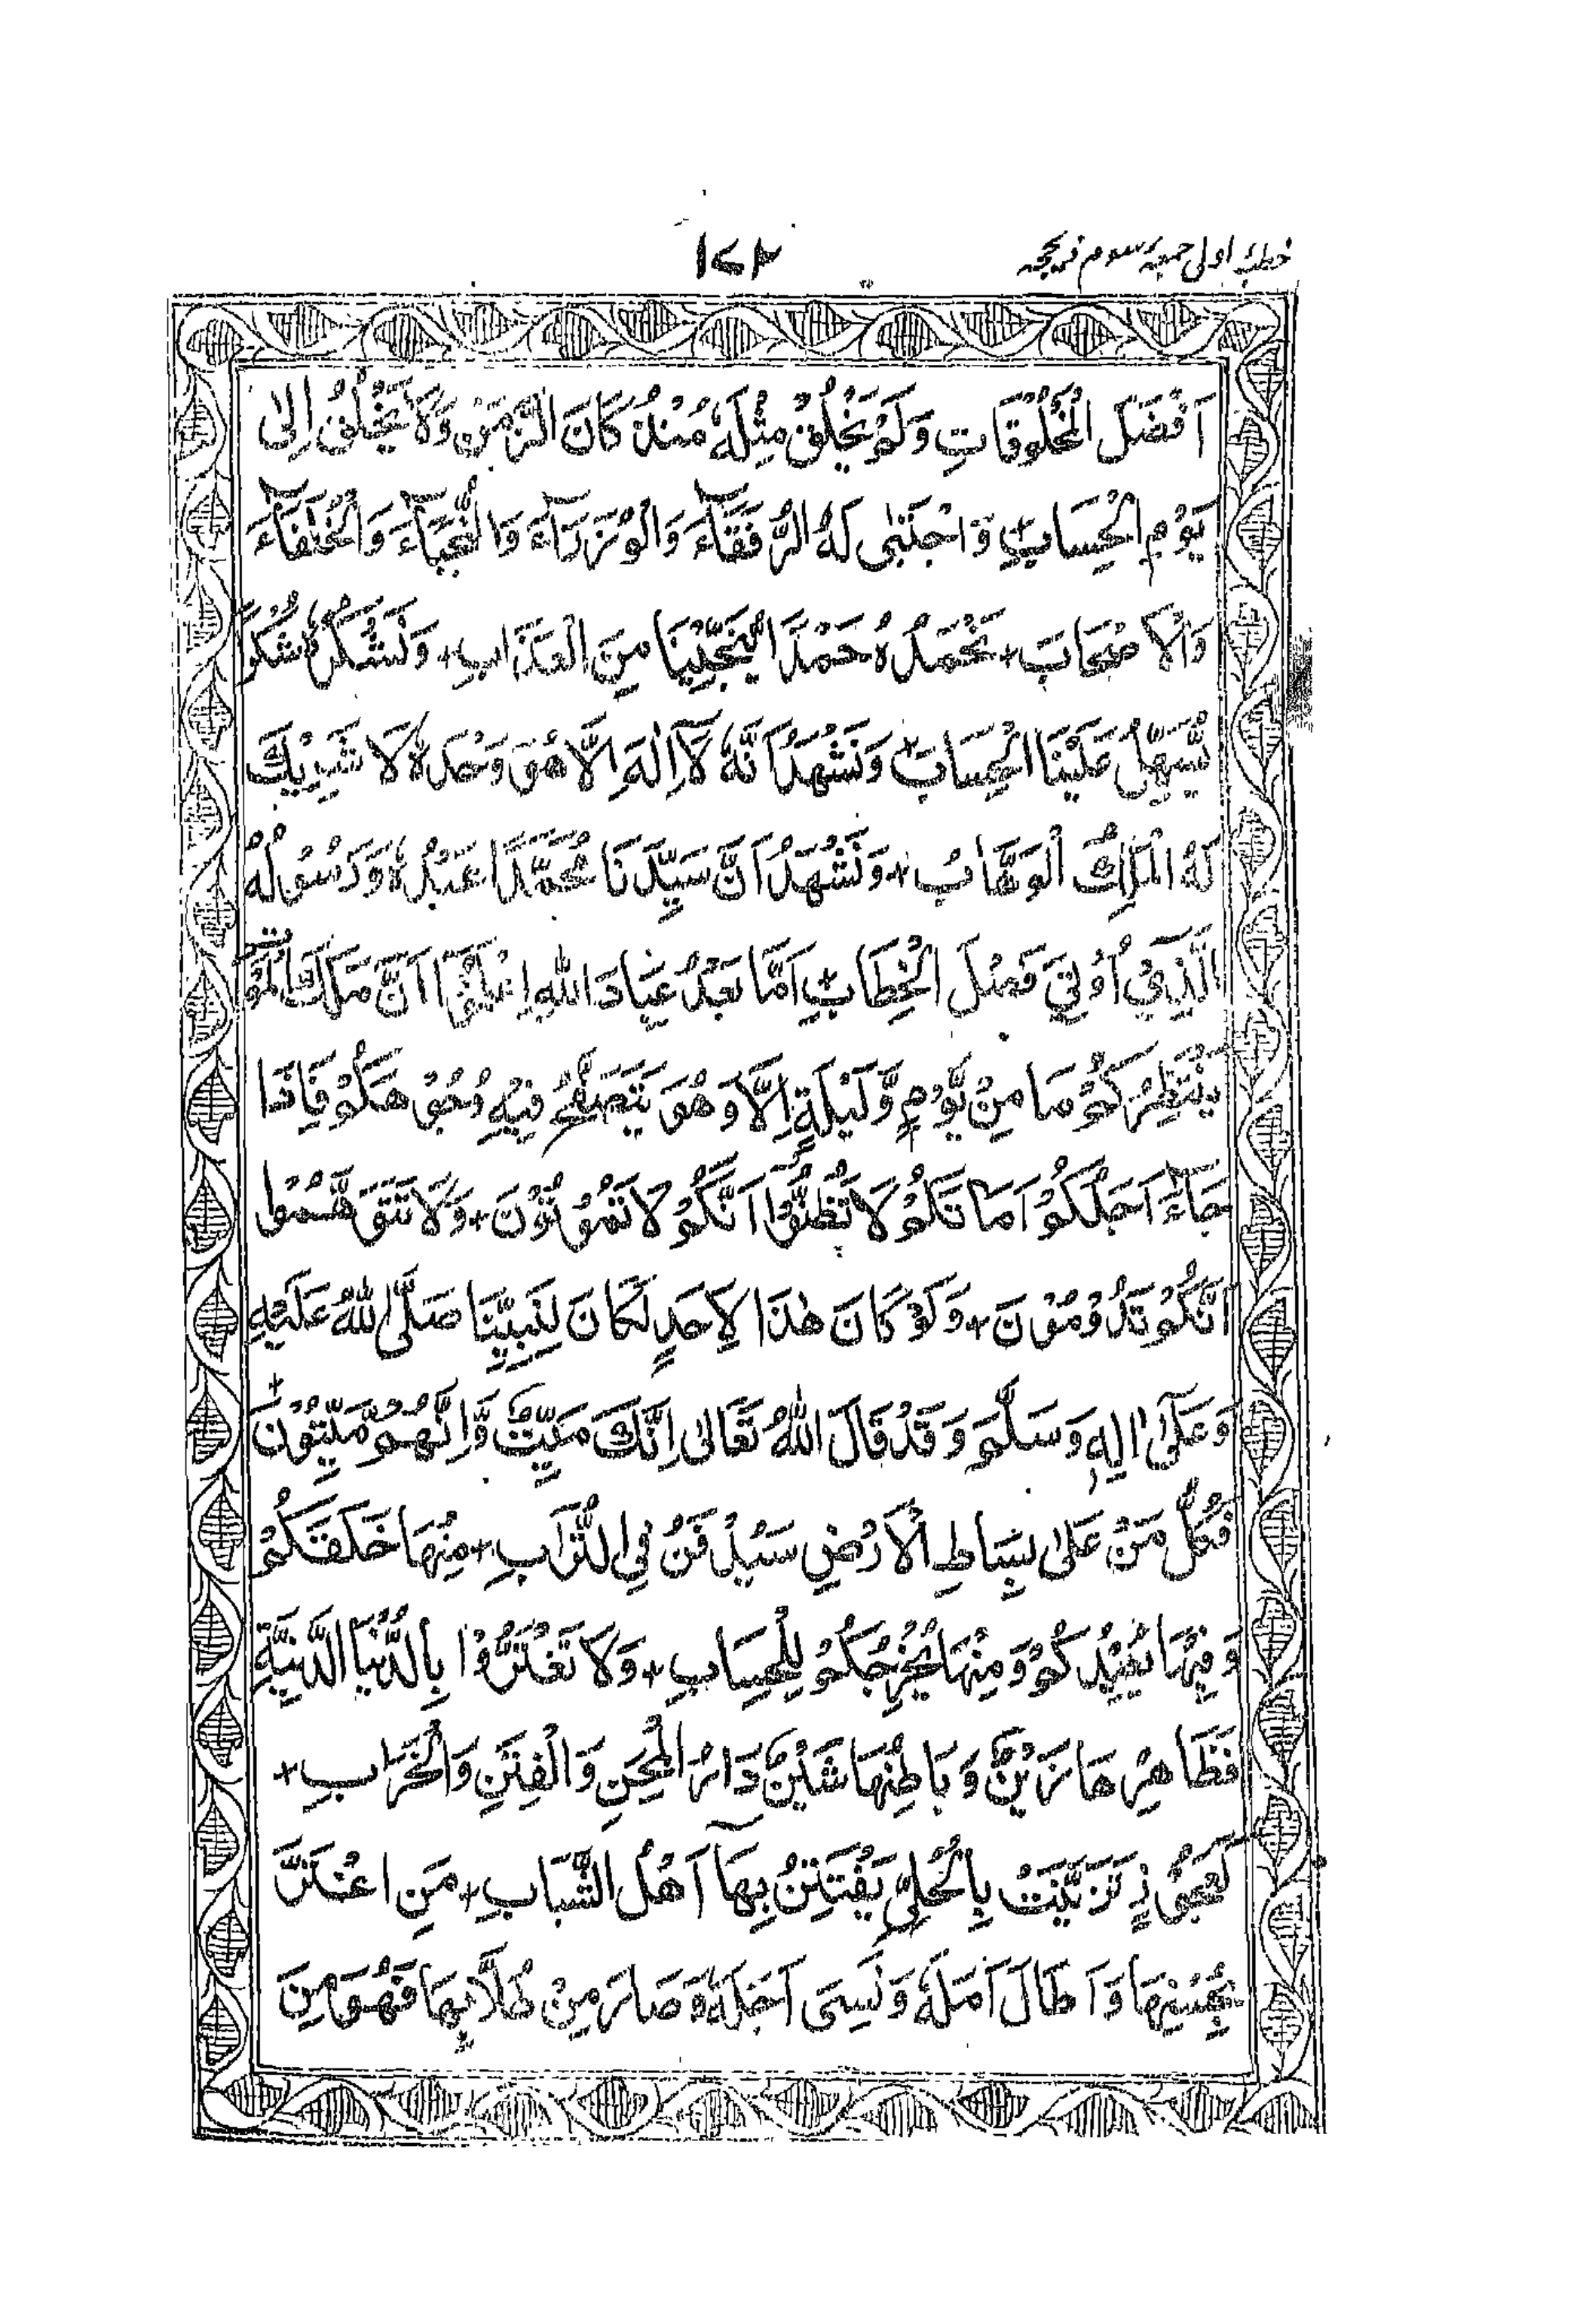 خطبۂ اولی جمعۂ سوم ذیحجہ
۱۷۲
اَفْضَلَ الْمَخْلُوْقَاتِ وَلَمْ يَخْلُقْ مِثْلَهٗ مُنْذُ كَانَ الزَّمَنُ وَلَا يَخْلُقُ اِلٰى
يَوْمِ الْحِسَابِ + وَاجْتَبٰى لَهُ الرُّفَقَآءَ وَالْوُزَرَآءَ وَالنُّجَبَآءَ وَالْخُلَفَآءَ
وَالْاَصْحَابَ + نَحْمَدُهٗ حَمْدًا يُّنَجِّيْنَا مِنَ الْعَذَابِ + وَنَشْكُرُهٗ شُكْرًا
يُّسَهِّلُ عَلَيْنَا الْحِسَابَ + وَنَشْهَدُ اَنَّهٗ لَآ اِلٰهَ اِلَّا هُوَ وَحْدَهٗ لَا شَرِيْكَ
لَهُ الْمَلِكُ الْوَهَّابُ + وَنَشْهَدُ اَنَّ سَيِّدَنَا مُحَمَّدًا عَبْدُهٗ وَرَسُوْلُهُ
الَّذِيْ اُوْتِيَ فَصْلَ الْخِطَابِ + اَمَّا بَعْدُ عِبَادَ اللهِ اِعْلَمُوْٓا اَنَّ مَلَكَ الْمَوْتِ
يَنْتَظِرُكُمْ مَا مِنْ يَّوْمٍ وَّلَيْلَةٍ اِلَّا وَهُوَ يَتَصَفَّحُ فِيْهِ وُجُوْهَكُمْ فَاِذَا
جَآءَ اَجَلُكُمْ اَمَاتَكُمْ لَا تَظُنُّوْٓا اَنَّكُمْ لَا تَمُوْتُوْنَ + وَلَا تَتَوَهَّمُوْا
اَنَّكُمْ تَدُوْمُوْنَ + وَلَوْ كَانَ هٰذَا لِاَحَدٍ لَكَانَ لِنَبِيِّنَا صَلَّى اللهُ عَلَيْهِ
وَعَلٰٓى اٰلِهٖ وَسَلَّمَ وَقَدْ قَالَ اللهُ تَعَالٰى اِنَّكَ مَيِّتٌ وَّاِنَّهُمْ مَّيِّتُوْنَ +
فَكُلُّ مَنْ عَلٰى بِسَاطِ الْاَرْضِ سَيُدْفَنُ فِي التُّرَابِ + مِنْهَا خَلَقَكُمْ
وَفِيْهَا يُعِيْدُكُمْ وَمِنْهَا يُخْرِجُكُمْ لِلْحِسَابِ + وَلَا تَغْتَرُّوْا بِالدُّنْيَا الدَّنِيَّةِ
فَظَاهِرُهَا زَيْنٌ وَبَاطِنُهَا شَيْنٌ دَارُ الْمِحَنِ وَالْفِتَنِ وَالْخَرَابِ +
كَعَجُوْزٍ تَزَيَّنَتْ بِالْحُلِيِّ يَفْتَتِنُ بِهَآ اَهْلُ الشَّبَابِ + مَنِ اغْتَرَّ
بِحُسْنِهَا وَاَطَالَ اَمَلَهٗ وَنَسِيَ اَجَلَهٗ وَصَارَ مِنْ طُلَّابِهَا فَهُوَ مِنَ